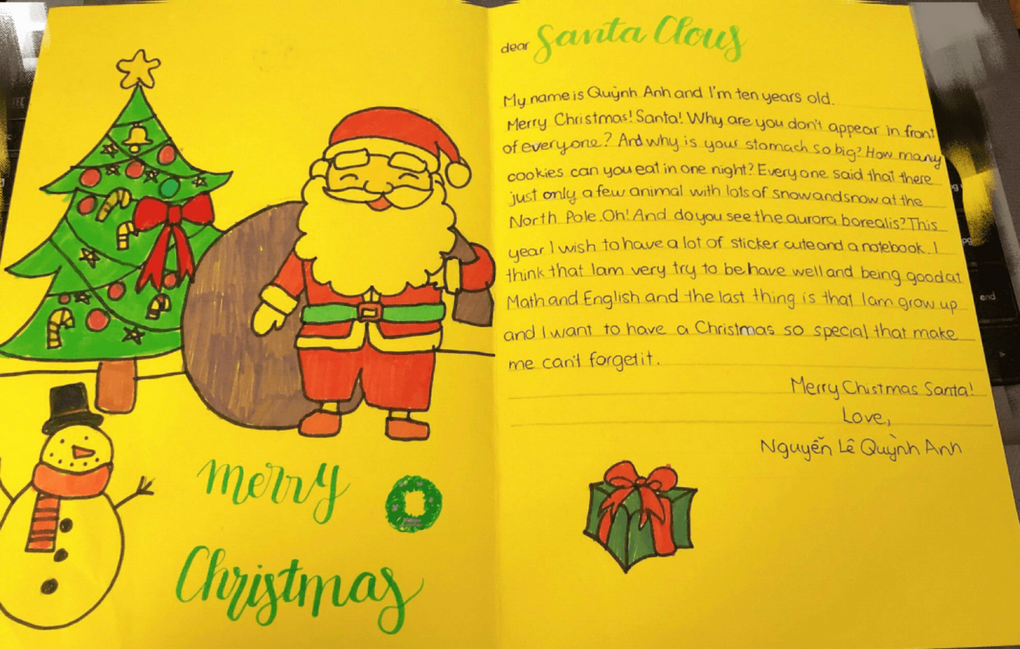 merry
Christmas
dear Santa Clous
My name is Quỳnh Anh and I'm ten years old.
Merry Christmas! Santa! Why are you don't appear in front
of everyone? And why is your stomach so big? How many
cookies can you eat in one night? Everyone said that there
just only a few animal with lots of snow and snow at the
North Pole. Oh! And do you see the aurora borealis? This
year I wish to have a lot of sticker cute and a notebook. I
think that I am very try to behave well and being good at
Math and English and the last thing is that I am grow up
and I want to have a Christmas so special that make
me can't forget it.
Merry Chistmas Santa!
Love,
Nguyễn Lê Quỳnh Anh
end